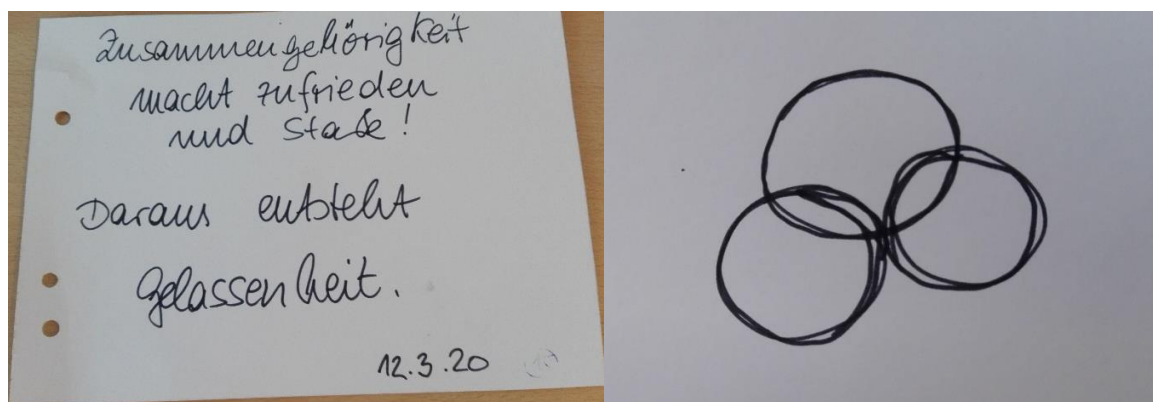 Zusammengehörigkeit
macht zufrieden
und
Daraus entsteht
Gelassenheit.
12.3.20